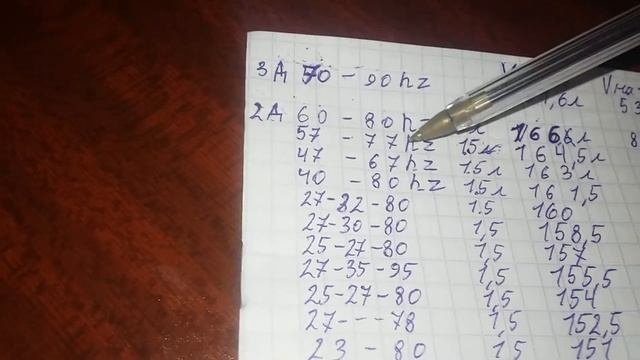 3Д 70 - 90 hz
1,6л 53
2Д 60 - 80 hz 166л
57 - 77 hz 1.5л 164,5л
47 - 67 hz 1.5л 163л
40 - 80 hz 1.5л 161,5
27-32-80 1.5 160
27-30-80 1,5 158,5
25-27-80 1,5 157
27-35-95 1,5 155,5
25-27-80 1,5 154
27---78 1,5 152,5
23-80 1.5 151